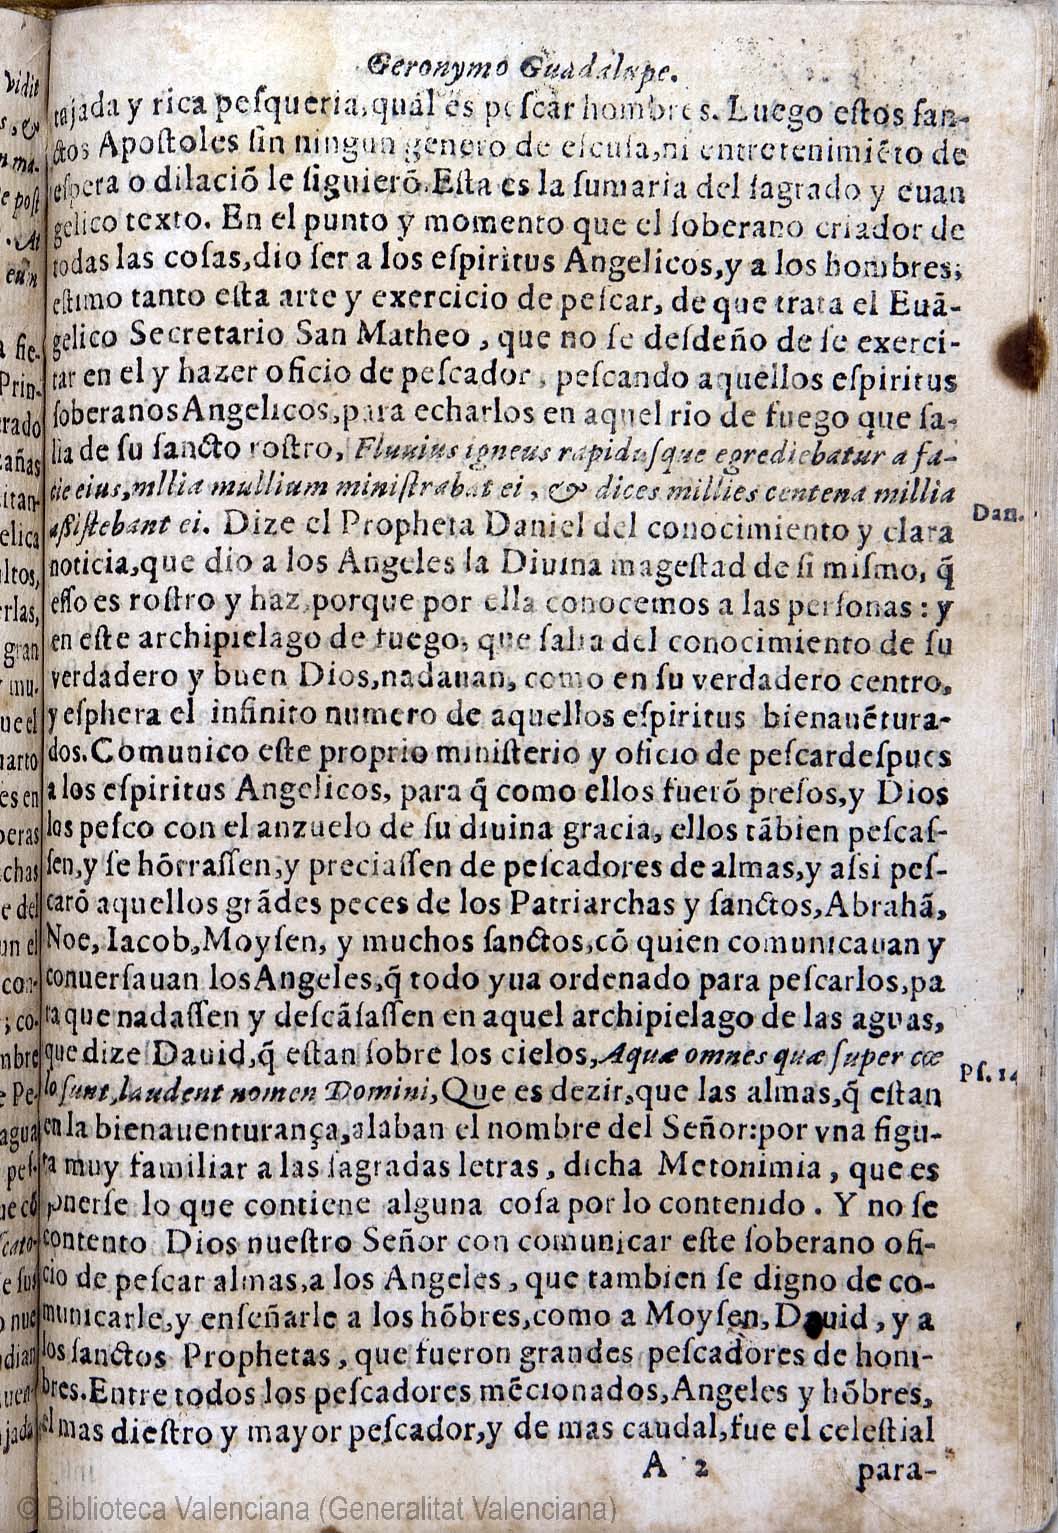 Geronymo Guadalupe.
tajada y rica pesqueria, qual es pescar hombres. Luego estos san-
ctos Apostoles sin ningun genero de escusa, ni entretenimiẽto de
espera o dilaciõ le siguierõ. Esta es la sumaria del sagrado y euan
gelico texto. En el punto y momento que el soberano criador de
todas las cosas, dio ser a los espiritus Angelicos, y a los hombres;
estimo tanto esta arte y exercicio de pescar, de que trata el Euã-
gelico Secretario San Matheo, que no se desdeño de se exerci-
tar en el y hazer oficio de pescador, pescando aquellos espiritus
soberanos Angelicos, para echarlos en aquel rio de fuego que sa-
lia de su sancto rostro, Fluuius igneus rapidusque egrediebatur a fa-
cie eius, mllia mullium ministrabat ei, & dices millies centena millia
assistebant ei. Dize el Propheta Daniel del conocimiento y clara
Dan.
noticia, que dio a los Angeles la Diuina magestad de si mismo, q̃
esso es rostro y haz, porque por ella conocemos a las personas: y
en este archipielago de fuego, que salia del conocimiento de su
verdadero y buen Dios, nadauan, como en su verdadero centro,
y esphera el infinito numero de aquellos espiritus bienauẽtura-
dos. Comunico este proprio ministerio y oficio de pescar despues
a los espiritus Angelicos, para q̃ como ellos fuerõ presos, y Dios
los pesco con el anzuelo de su diuina gracia, ellos tãbien pescas-
sen, y se hõrrassen, y preciassen de pescadores de almas, y assi pes-
carõ aquellos grãdes peces de los Patriarchas y sanctos, Abrahã,
Noe, Iacob, Moysen, y muchos sanctos, cõ quien comunicauan y
conuersauan los Angeles, q̃ todo yua ordenado para pescarlos, pa
ra que nadassen y descãsassen en aquel archipielago de las aguas,
que dize Dauid, q̃ estan sobre los cielos, Aquæ omnes quæ super cœ
lo sunt, laudent nomen Domini, Que es dezir, que las almas, q̃ estan
Ps. 14
en la bienauenturança, alaban el nombre del Señor: por vna figu-
ra muy familiar a las sagradas letras, dicha Metonimia, que es
ponerse lo que contiene alguna cosa por lo contenido. Y no se
contento Dios nuestro Señor con comunicar este soberano ofi-
cio de pescar almas, a los Angeles, que tambien se digno de co-
municarle, y enseñarle a los hõbres, como a Moysen, Dauid, y a
los sanctos Prophetas, que fueron grandes pescadores de hom-
bres. Entre todos los pescadores mẽcionados, Angeles y hõbres,
el mas diestro y mayor pescador, y de mas caudal, fue el celestial
A 2 para-
© Biblioteca Valenciana (Generalitat Valenciana)